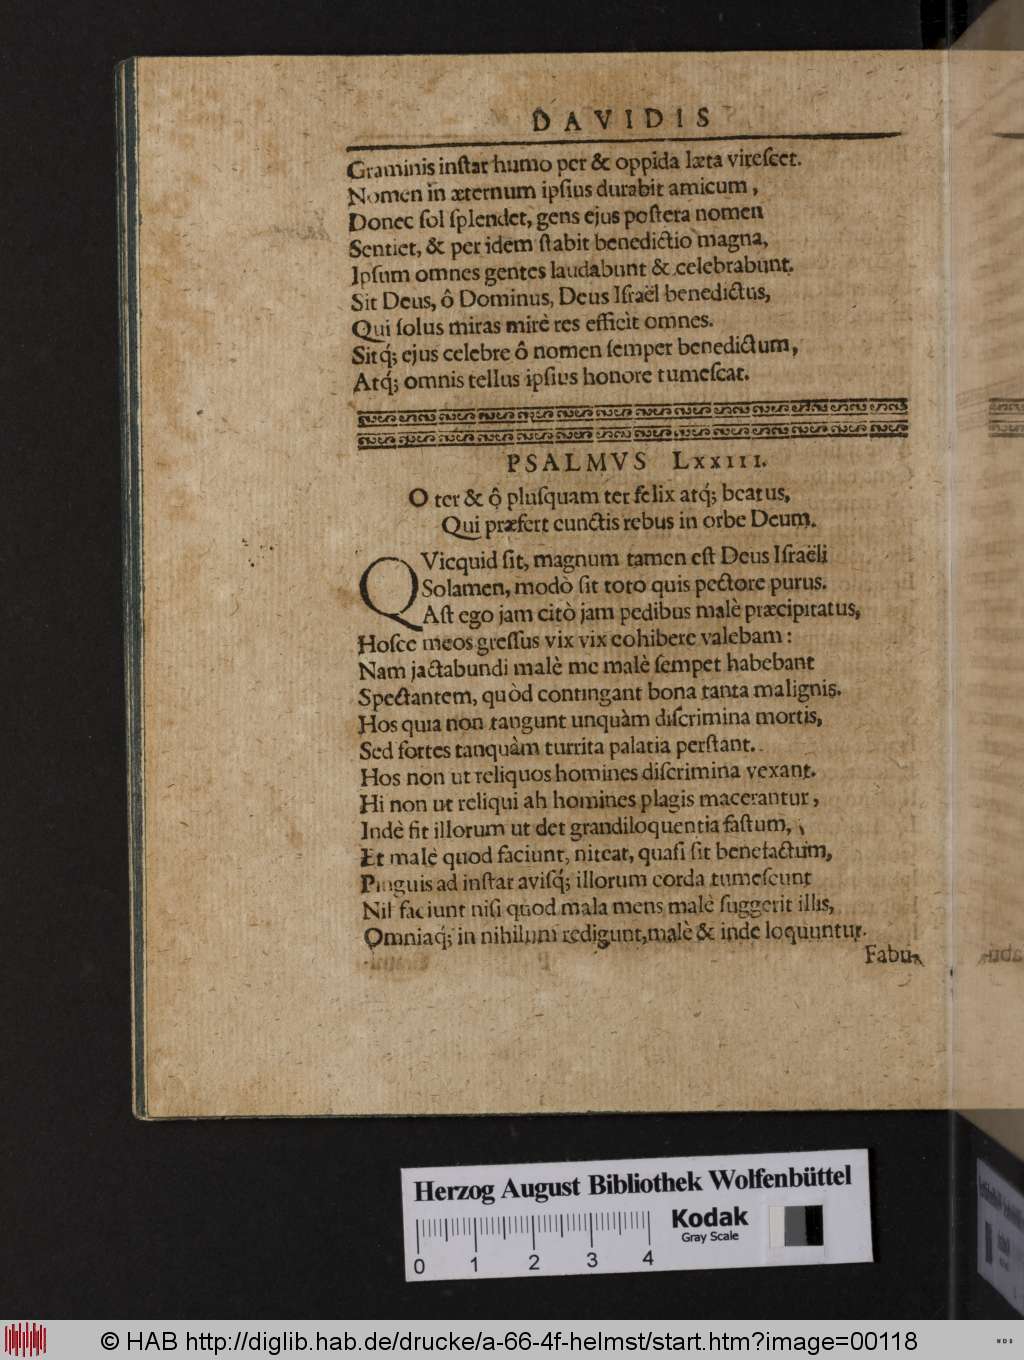 DAVIDIS
Graminis inſtar humo per & oppida læta vireſcet.
Nomen in æternum ipſius durabit amicum,
Donec ſol ſplendet, gens ejus poſtera nomen
Sentiet, & per idem ſtabit benedictio magna,
Ipſum omnes gentes laudabunt & celebrabunt.
Sit Deus, ô Dominus, Deus Iſraël benedictus,
Qui ſolus miras mirè res efficit omnes.
Sitq́; ejus celebre ô nomen ſemper benedictum,
Atq́; omnis tellus ipſius honore tumeſcat.
PSALMVS LXXIII.
O ter & ô pluſquam ter felix atq́; beatus,
Qui præfert cunctis rebus in orbe Deum.
QVicquid ſit, magnum tamen eſt Deus Iſraëli
Solamen, modò ſit toto quis pectore purus.
Aſt ego jam citò jam pedibus malè præcipitatus,
Hoſce meos greſſus vix vix cohibere valebam:
Nam jactabundi malè me malè ſemper habebant
Spectantem, quòd contingant bona tanta malignis.
Hos quia non tangunt unquàm diſcrimina mortis,
Sed fortes tanquàm turrita palatia perſtant.
Hos non ut reliquos homines diſcrimina vexant.
Hi non ut reliqui ah homines plagis macerantur,
Indè fit illorum ut det grandiloquentia faſtum,
Et malè quod faciunt, niteat, quaſi ſit benefactum,
Pinguis ad inſtar aviſq́; illorum corda tumeſcunt
Nil faciunt niſi quod mala mens malè ſuggerit illis,
Omniaq́; in nihilum redigunt, malè & inde loquuntur.
Fabu-
Herzog August Bibliothek Wolfenbüttel
Kodak
Gray Scale
0 1 2 3 4
© HAB http://diglib.hab.de/drucke/a-66-4f-helmst/start.htm?image=00118